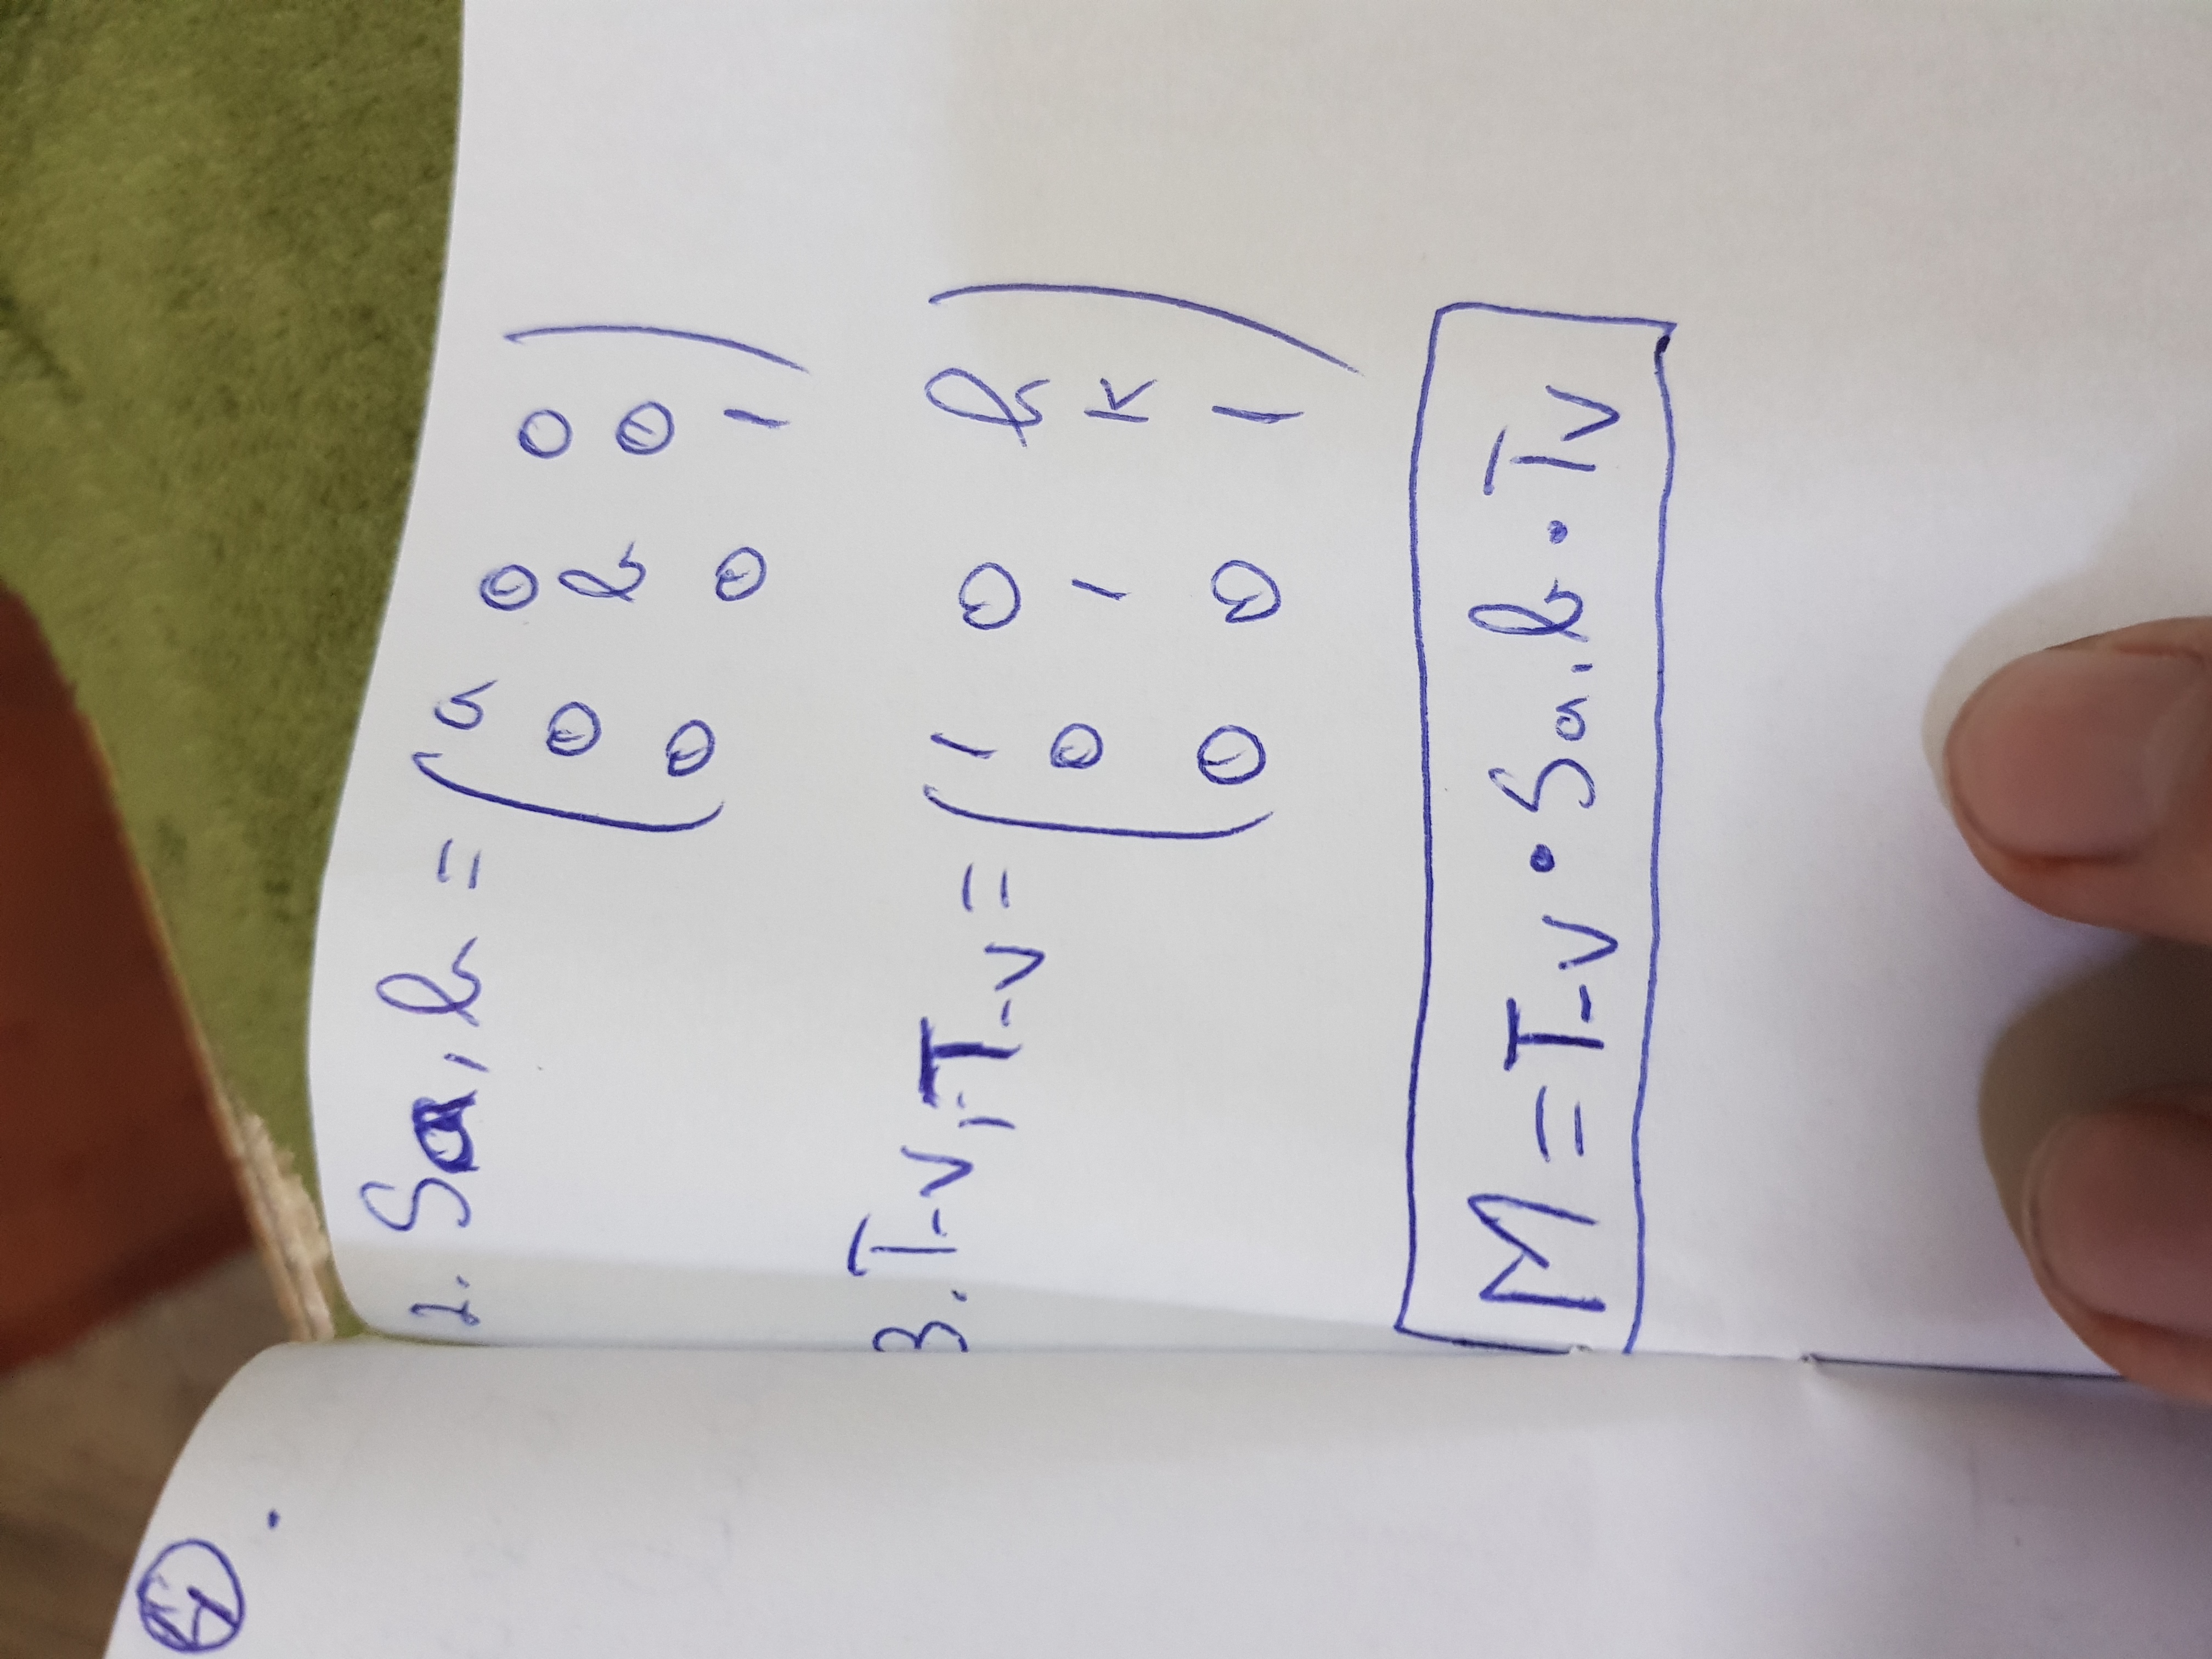 ④.
2. Sa,b = ( a 0 0
0 b 0
0 0 1 )
3. T-v, T-v = ( 1 0 h
0 1 k
0 0 1 )
M = T-v · Sa,b · Tv